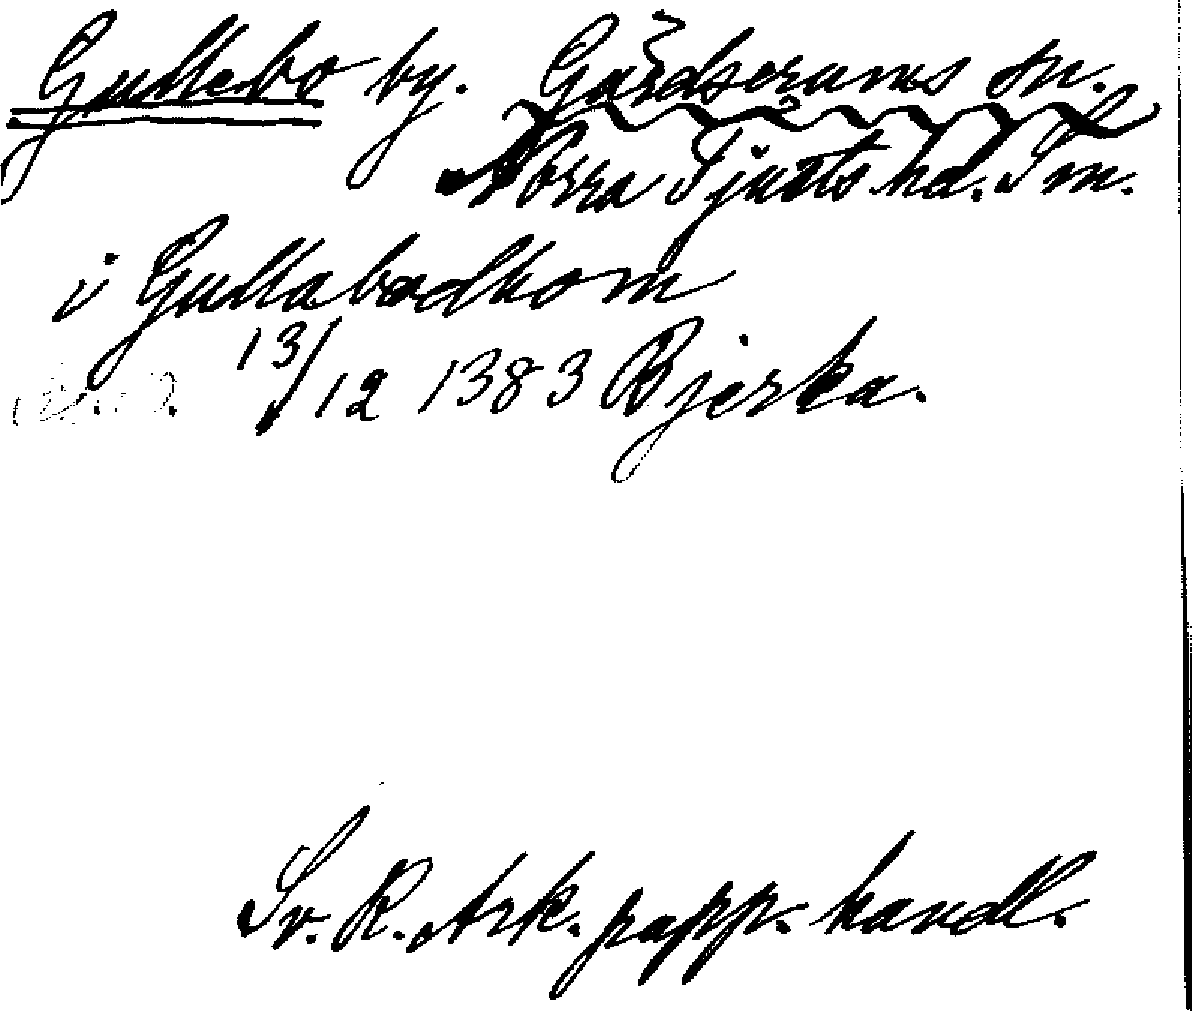 Gullebo by. Gärdserums sn.
Norra Tjusts hd. Sm.
i Gullabodhom
13/12 1383 Bjerka.
Sv. R. Ark. papp. handl.